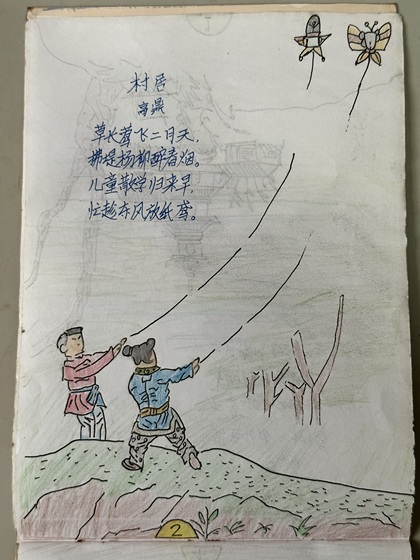 村居
高鼎
草长莺飞二月天，
拂堤杨柳醉春烟。
儿童散学归来早，
忙趁东风放纸鸢。
2